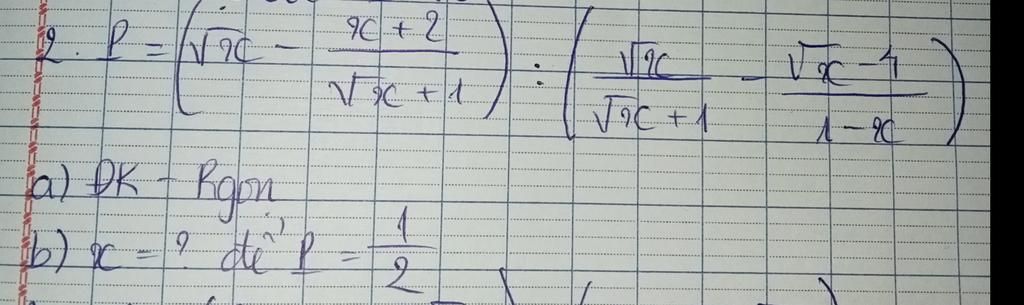 2. P = (√x − (x + 2)/(√x + 1)) : (√x/(√x + 1) − (√x − 4)/(1 − x))
a) ĐK − Rgọn
b) x = ? để P = 1/2